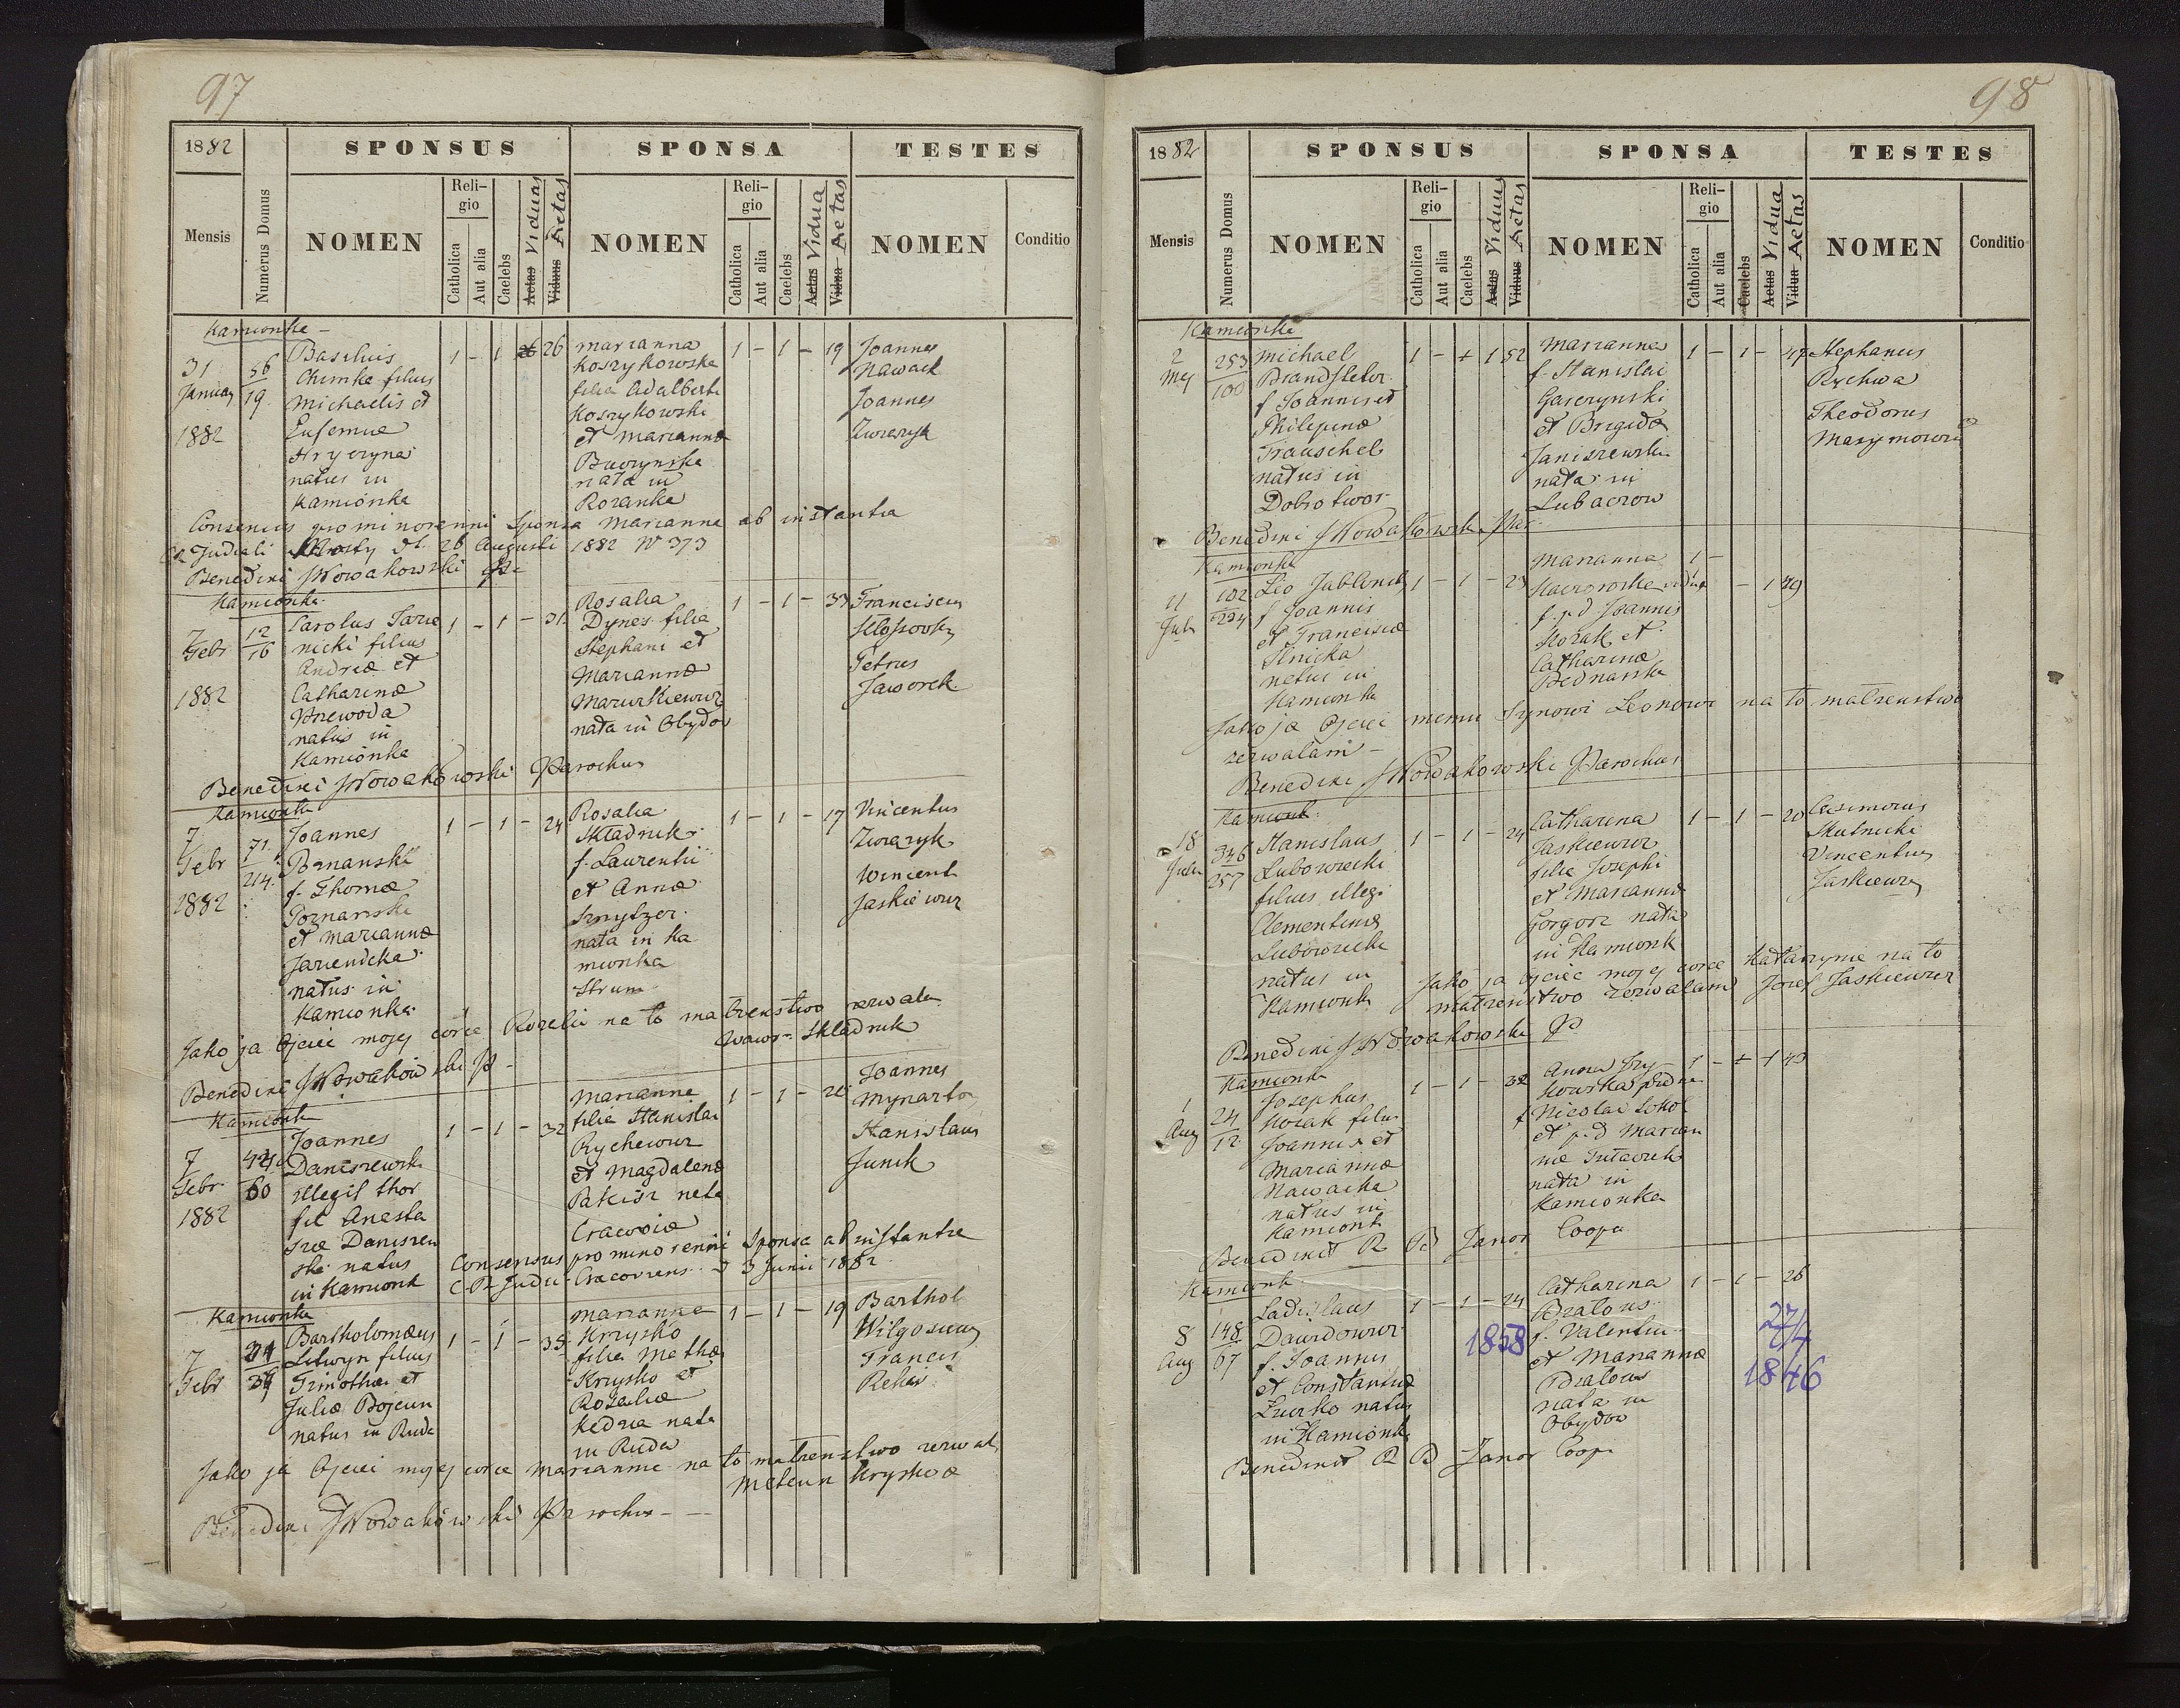 97
1882
SPONSUS
SPONSA
TESTES
Mensis
Numerus Domus
NOMEN
Religio
Catholica
Aut alia
Caelebs
Aetas Viduus
Viduus Aetas
NOMEN
Religio
Catholica
Aut alia
Caelebs
Aetas Vidua
Vidua Aetas
NOMEN
Conditio
Kamionka
31 Januar 1882
56
19
Basilius
Chimka filius
Michaelis et
Eufemiæ
natus in
Kamionka
1 - 1 26 26
Marianna
Koszykowska
filia Adalberti
Koszykowski
et Mariannæ
Buczynska
nata in
Rozanka
1 - 1 - 19
Joannes
Nawack
Joannes
Zwaryk
Consensus pro minorenni Sponsa Marianna ab instantia
Judiciali Mosty dt. 26 Augusti 1882 N 373
Benedixi JNowakowski
Kamionka
7 Febr 1882
12
16
Carolus
nicki filius
Andreæ et
Catharinæ
natus in
Kamionka
1 - 1 - 31
Rosalia
Dynes filia
Stephani et
Mariannæ
Marurkiewicz
nata in Obydow
1 - 1 - 33
Franciscus
Klossovsky
Petrus
Jaworek
Benedixi JNowakowski Parochus
Kamionka
7 Febr 1882
71
214
Joannes
Poznanski
f. Thomæ
Poznanski
et Mariannæ
natus in
Kamionka
1 - 1 - 24
Rosalia
Składnik
f. Laurentii
et Annæ
nata in Ka
mionka
Strum
1 - 1 - 17
Vincentus
Zwaryk
Wincent
Jaskiewicz
Jako ja Ojciec mojej córce Rozalii na to małzenstwo zezwala
Wawr. Składnik
Benedixi JNowakowski P
Kamionk
7 Febr 1882
424
60
Joannes
Daniszewski
illegit thor
fil Anasta
siæ Daniszew
ska natus
in Kamionk
1 - 1 - 32
Marianna
filia Stanislai
Rychewicz
et Magdalenæ
nata
Cracoviæ
1 - 1 - 20
Joannes
Mynarto
Stanislaus
Junik
Consensus pro minorenni Sponsa ab instantia
C. R. Judic. Cracoviens d 3 Junii 1882
Kamionka
7 Febr
Bartholomæus
Litwyn filius
Timothæi et
Juliæ Bojcun
natus in Ruda
1 - 1 - 38
Marianna
Krysko
filia Mathæ
Krysko et
Rozaliæ
Kedra nata
in Ruda
1 - 1 - 19
Barthol
Wilgosiewicz
Francis
Jako ja Ojciec mojej corce Mariannie na to malzenstwo zezwal
Benedixi JNowakowski Parochus
98
1882
SPONSUS
SPONSA
TESTES
Mensis
Numerus Domus
NOMEN
Religio
Catholica
Aut alia
Caelebs
Aetas Viduus
Viduus Aetas
NOMEN
Religio
Catholica
Aut alia
Caelebs
Aetas Vidua
Vidua Aetas
NOMEN
Conditio
Kamionka
2 Maj
253
100
Michael
Brandsteter
f Joannis et
Philipinæ
Trauschel
natus in
Dobrotwor
1 - + 1 52
Marianna
f. Stanislai
Gaserynski
et Brigidæ
Janiszewska
nata in
Lubaczow
1 - 1 - 47
Stephanus
Rychwa
Theodorus
Benedixi JNowakowski Par.
Kamionka
11 Juli
102
224
Leo Jablonsky
f Joannis
et Franciscæ
Slnicka
natus in
Kamionka
1 - 1 - 23
Marianna
vidua
f. p.d Joannis
Kozak et
Catharinæ
Bednarska
1 - - 1 49
Jako ja Ojciec memu Synowi Leonowi na to małzenstwo
zezwalam
Benedixi JNowakowski Parochus
Kamionk
18 Juli
346
257
Stanislaus
Lubowiecki
filius illegi
Clementinæ
Lubowiecka
natus in
Kamionk
1 - 1 - 24
Catharina
Jaskiewicz
filia Josephi
et Mariannæ
Gorgosz nata
in Kamionk
1 - 1 - 20
Casimirus
Skulnicki
Vincentius
Jaskiewicz
Jako ja Ojciec mojej corce Katarzynie na to
małzenstwo zezwalam Jozef Jaskiewicz
Benedixi JNowakowski P
Kamionk
1 Aug
24
12
Josephus
Kozak filius
Joannis et
Mariannæ
Nawacka
natus in
Kamionk
1 - 1 - 32
Anna Fry
kowska vidua
f Nicolai Sokol
et p.d Marian
næ
nata in
Kamionka
1 - + 1 40
Benedixit R B Janor Coope
Kamionk
8 Aug
148
67
Ladislaus
Dawidowicz
f. Joannis
et Constantiæ
Zurko natus
in Kamionk
1 - 1 - 24
1858
Catharina
Bialous
f. Valentin
et Mariannæ
Bialous
nata in
Obydow
1 - 1 - 26
27/4
1846
Benedixit R B Janor Coop